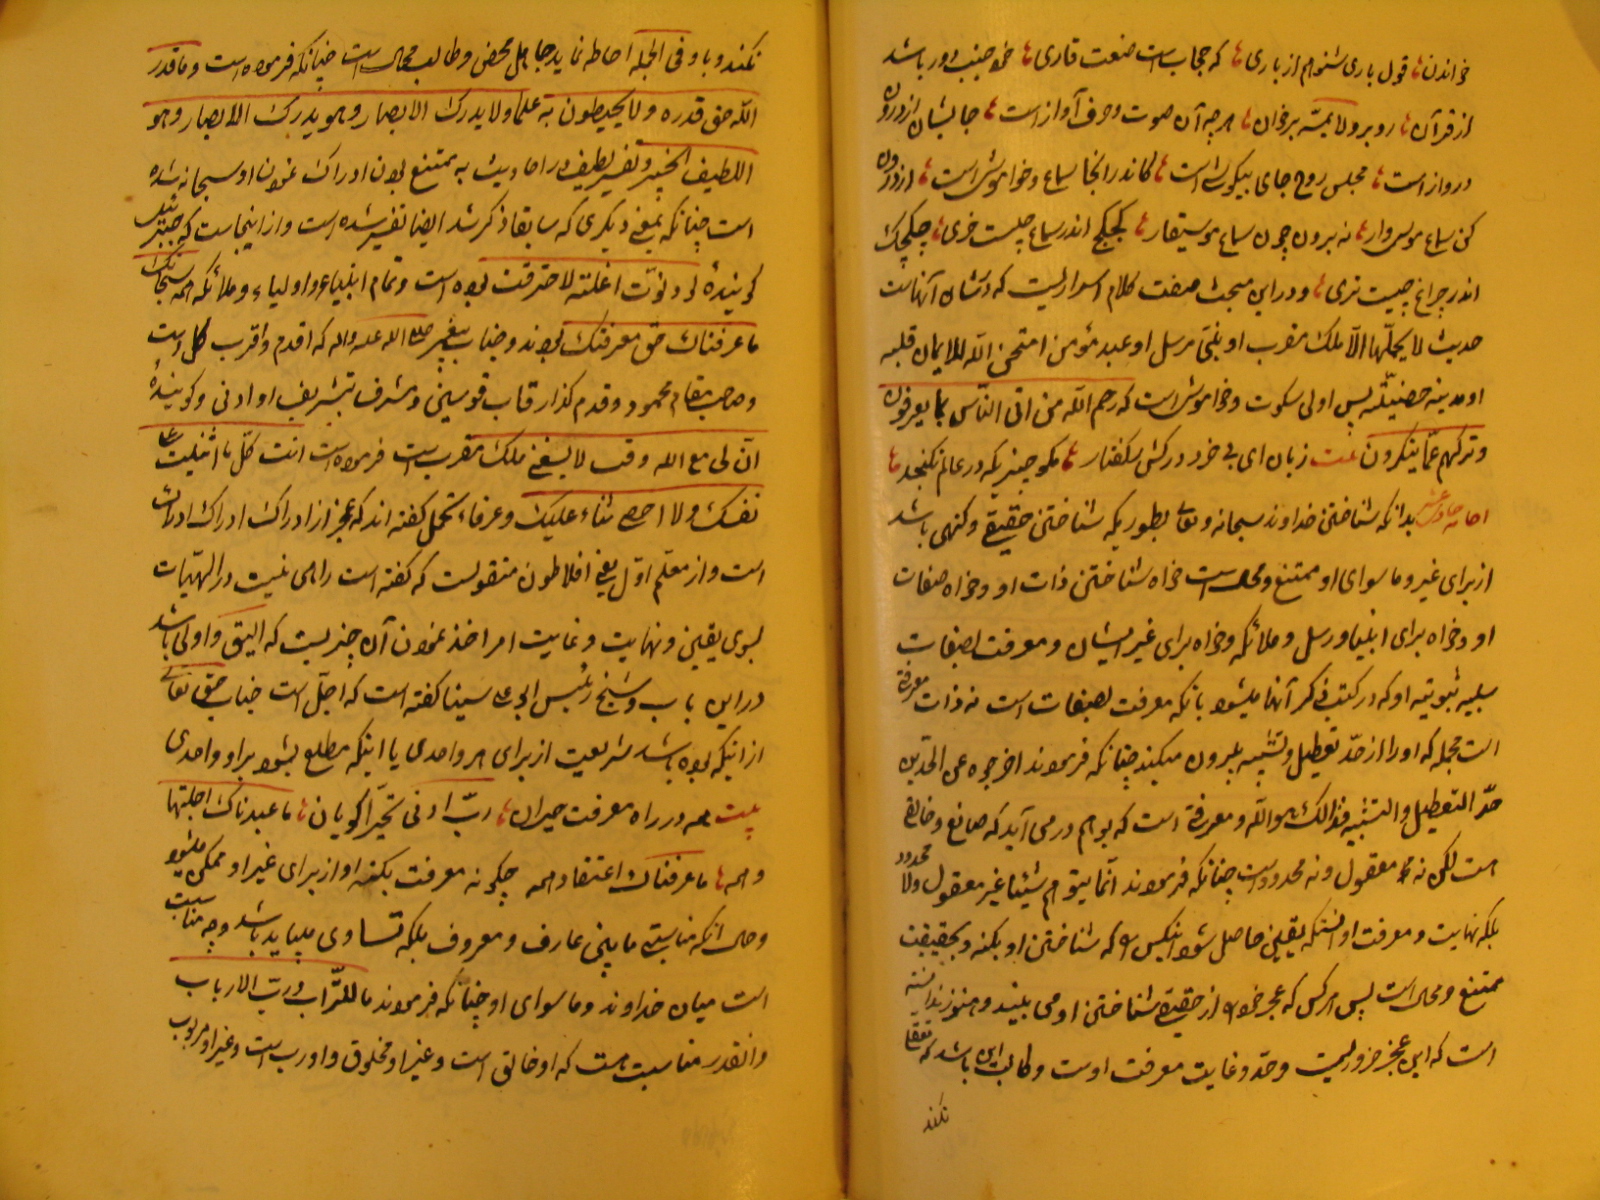 خواندن قول باری شنوم از باری که حجابست صنعت قاری خود حبیب دور باشد
از قرآن روبرو لا یمسّه برخوان هرچه آن صوت و حرف آواز است جانشان از درون
درواز است مجلس روح جای بیگوشی است کاندر انجا سماع و خواموشی است از درون
کن سماع موسی وار نه برون چون سماع موسیقار کجکج اندر سماع چیست خری چکچک
اندر چراغ چیست تری و در این مبحث صفت کلام اسراریست که در شان آنهاست
حدیث لا یحملها الّا ملک مقرب او نبیّ مرسل او عبد مؤمن امتحن الله للایمان قلبه
او مدینه حصینة پس اولی سکوت و خواموشی است که رحم الله من اتی النّاس بما یعرفون
و ترکهم عمّا ینکرون بیت زبان ای بی خرد درکش ز گفتار مگو چیزیکه در عالم نگنجد
بدانکه شناختن خداوند سبحانه و تعالی بطوریکه شناختن حقیقی و کنهی باشد
از برای غیر و ماسوای او ممتنع و محالست خواه شناختن ذات او و خواه صفات
او و خواه برای انبیا و رسل و ملائکه و خواه برای غیر ایشان و معرفت بصفات
سلبیه ثبوتیه او که در کتب ذکر آنها میشود بانکه معرفت بصفات است نه ذات معرفة
است مجمله که او را از حدّ تعطیل و تشبیه بیرون میکند چنانکه فرمودند اخرجوه عن الحدّین
حدّ التعطیل و التشبیه فذالک هو الله و معرفة است که بوهم در می آید که صانع و خالقی
هست لکن نه معقول و نه محدودست چنانکه فرمودند انّما یتوهم شیئا غیر معقول ولا محدود
بلکه نهایت و معرفت او انستکه یقین حاصل شود انکس را که شناختن او بکنه و بحقیقت
ممتنع و محال است پس هر کس که عجز خود را از حقیقة شناختن او می بیند و هنوز ندانسته
است که این عجز ضروریست و حدّ و غایت معرفت اوست و طالب این باشد که تعقل
نکند
نکند و با و فی الجملة احاطه نماید جاهل محض و طالب محال است چنانکه فرموده است و ما قدر
الله حق قدره و لا یحیطون به علما و لا یدرک الابصار و هو یدرک الابصار و هو
اللطیف الخبیر و تفسیر لطیف در احادیث به ممتنع بودن ادراک نمودن او سبحانه شده
است چنانکه بمعنی دیگری که سابقا ذکر شد ایضا تفسیر شده است و از اینجاست که جبرئیل
گویندهٔ لو دنوت انملة لاحترقت بوده است و تمام انبیاء و اولیاء و ملائکه همه سبحانک
ما عرفناک حق معرفتک بودند و جناب پیغمبر صلی الله علیه و اله که اقدم و اقرب کل است
و صاحب مقام محمود و قدم گذار قاب قوسین و مشرف بتشریف او ادنی و گویندهٔ
انّ لی مع الله وقت لا یسعنی ملک مقرب است فرموده است انت کلّ ما اثنیت علی
نفسک و لا احصی ثناء علیک و عرفاء کمّل گفته اند که عجز از ادراک ادراک ادراک
است و از معلّم اوّل یعنی افلاطون منقولست که گفته است راهی نیست در الهیّات
بسوی یقین و نهایت و غایت امر اخذ نمودن آن چیزیست که الیق و اولی باشد
در این باب و شیخ رئیس ابو علی سینا گفته است که اجلّ است جناب حق تعالی
از اینکه بوده باشد شریعت از برای هر واحدی یا اینکه مطلع بشود بر او واحدی
بیت همه در راه معرفت حیران ربّ زدنی تحیّرا گویان ما عبدناک اجلتها
و همه ما عرفناک اعتقاد همه چگونه معرفت بکنه او از برای غیر او ممکن میشود
و حال انکه مناسبتی مابین عارف و معروف بلکه تساوی میباید باشد و چه مناسبت
است میان خداوند و ماسوای او چنانکه فرمودند ما للتّراب و ربّ الارباب
و انقدر مناسبت هست که او خالق است و غیر او مخلوق و او رب است و غیر او مربوب